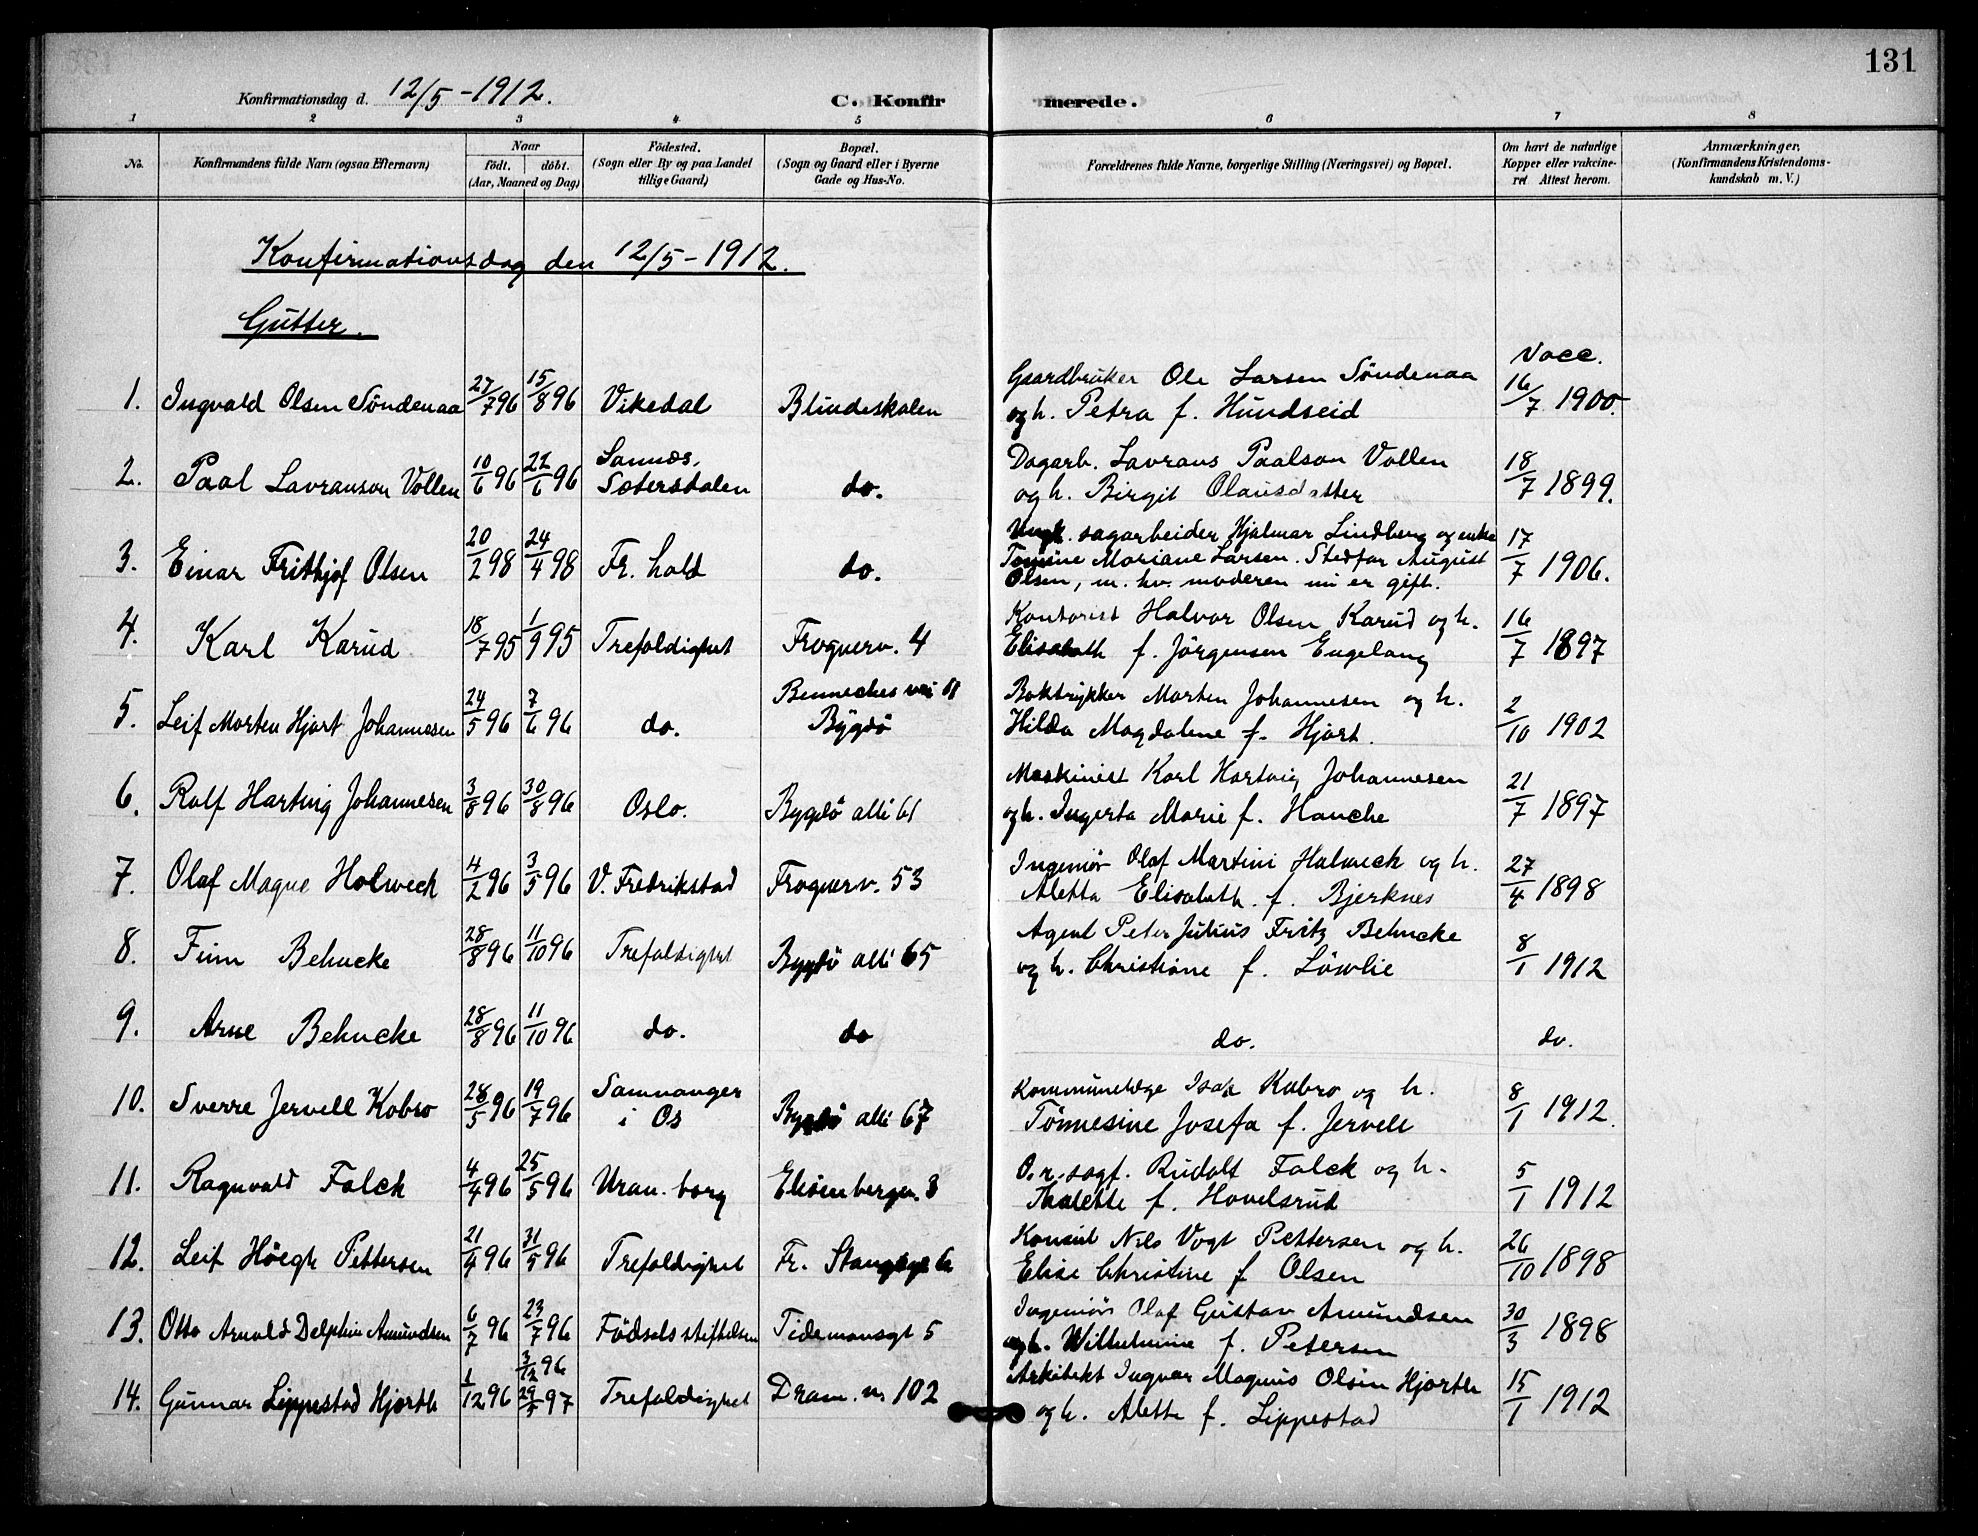 131
Konfirmationsdag d. 12/5-1912.
C. Konfirmerede.
1 2 3 4 5 6 7 8
No.
Konfirmandens fulde Navn (ogsaa Efternavn)
Naar
født. døbt.
(Aar, Maaned og Dag)
Födested.
(Sogn eller By og paa Landet
tillige Gaard)
Bopæl.
(Sogn og Gaard eller i Byerne
Gade og Hus-No.
Forældrenes fulde Navne, borgerlige Stilling (Næringsvei) og Bopæl.
Om havt de naturlige
Kopper eller vakcine-
ret Attest herom.
Anmærkninger,
(Konfirmandens Kristendoms-
kundskab m. V.)
Konfirmationsdag den 12/5-1912.
Gutter.
Vacc.
1. Ingvald Olsen Söndenaa 27/7 96 15/8 96 Vikedal Blindeskolen Gaardbruker Ole Larsen Söndenaa
og h. Petra f. Hundseid 16/7 1900.
2. Paal Lavranson Vollen 10/6 96 22/6 96 Sannes, Sætersdalen do. Dagarb. Lavrans Paalson Vollen
og h. Birgit Olausdatter 18/7 1899.
3. Einar Frithjof Olsen 20/2 98 24/4 98 Fr. hald do. Ungk. sagarbeider Hjalmar Lindberg og enke
Tomine Mariane Larsen. Stedfar August
Olsen, m. hv. moderen nu er gift. 17/7 1906.
4. Karl Karud 18/7 95 1/9 95 Trefoldighet Frognerv. 4 Kontorist Halvor Olsen Karud og h.
Elisabeth f. Jörgensen Engelang 16/7 1897
5. Leif Morten Hjort Johannesen 24/5 96 7/6 96 do. Benneches vei
Bygdö Boktrykker Morten Johannesen og h.
Hilda Magdalene f. Hjort. 2/10 1902
6. Rolf Hartvig Johannesen 3/8 96 30/8 96 Oslo. Bygdö alle 61 Maskinist Karl Hartvig Johannesen
og h. Ingerta Marie f. Hanche 21/7 1897
7. Olaf Magne Holweck 4/2 96 3/5 96 V. Fredrikstad Frognerv. 53 Ingeniör Olaf Martini Holweck og h.
Aletta Elisabeth. f. Bjerknes 27/4 1898
8. Finn Behncke 28/8 96 11/10 96 Trefoldighet Bygdö alle 65 Agent Peter Julius Fritz Behncke
og h. Christiane f. Löwlie 8/1 1912
9. Arne Behncke 28/8 96 11/10 96 do. do do. do.
10. Sverre Jervell Kobro 28/5 96 19/7 96 Samnanger
i Os Bygdö alle 67 Kommunelæge Isak Kobro og h.
Tönnesine Josefa f. Jervell 8/1 1912.
11. Ragnvald Falck 4/4 96 25/5 96 Uran. borg Elisenbergv. 3 O.r.sagf. Rudolf Falck og h.
Thalette f. Hovelsrud 5/1 1912
12. Leif Höegh Pettersen 21/4 96 31/5 96 Trefoldighet Fr. Stangsgt 6 Konsul Nils Vogt Pettersen og h.
Elise Christine f Olsen 26/10 1898
13. Otto Arnold Delphin Amundsen 6/7 96 23/7 96 Födselsstiftelsen Tidemansgt 5 Ingeniör Olaf Gustav Amundsen
og h. Wilhelmine f. Petersen 30/3 1898
14. Gunnar Lippestad Hjorth 1/12 96 3/12 96 97 Trefoldighet Dram. v. 102 Arkitekt Ingvar Magnus Olsen Hjorth
og h. Alette f. Lippestad 15/1 1912